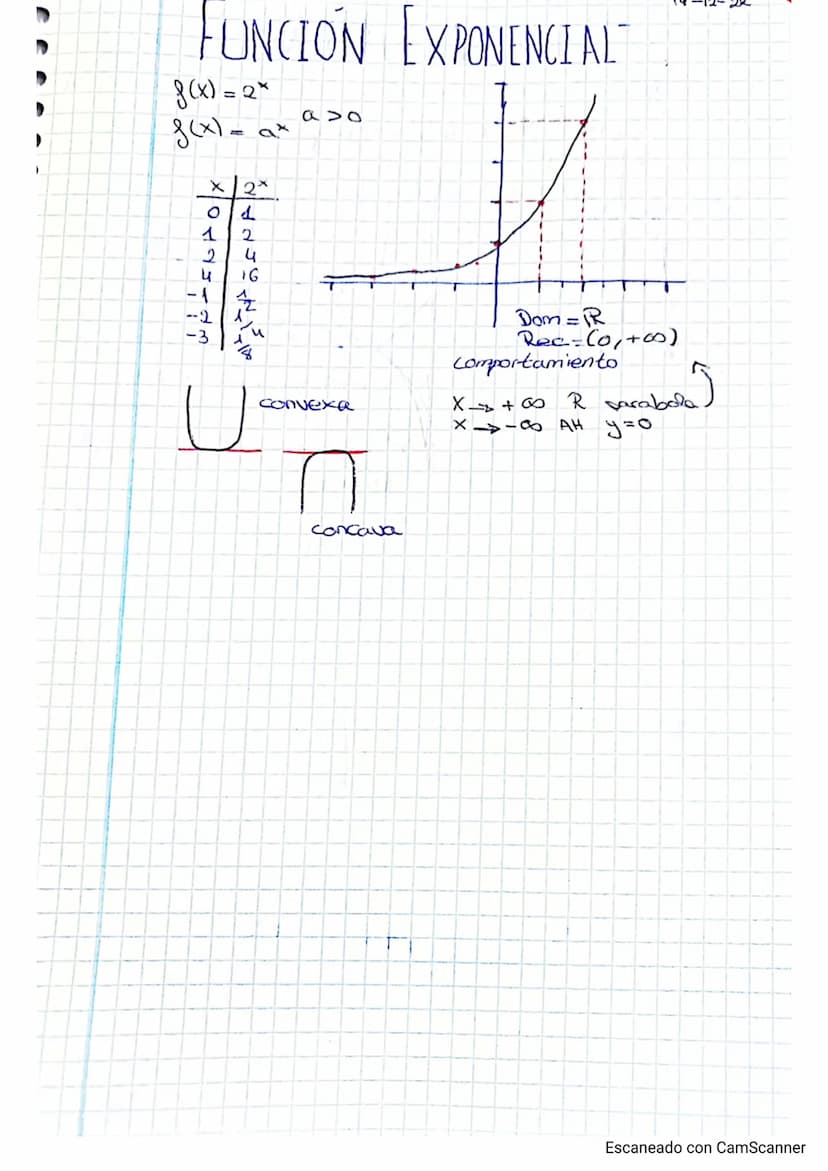 FUNCIÓN EXPONENCIAL
f(x) = 2ˣ
f(x) = aˣ a > 0
x | 2ˣ
0 | 1
1 | 2
2 | 4
4 | 16
-1 | 1/2
-2 | 1/4
-3 | 1/8
Dom = ℝ
Rec = (0, +∞)
comportamiento
x → +∞ R parabola
x → -∞ AH y=0
convexa
concava
Escaneado con CamScanner